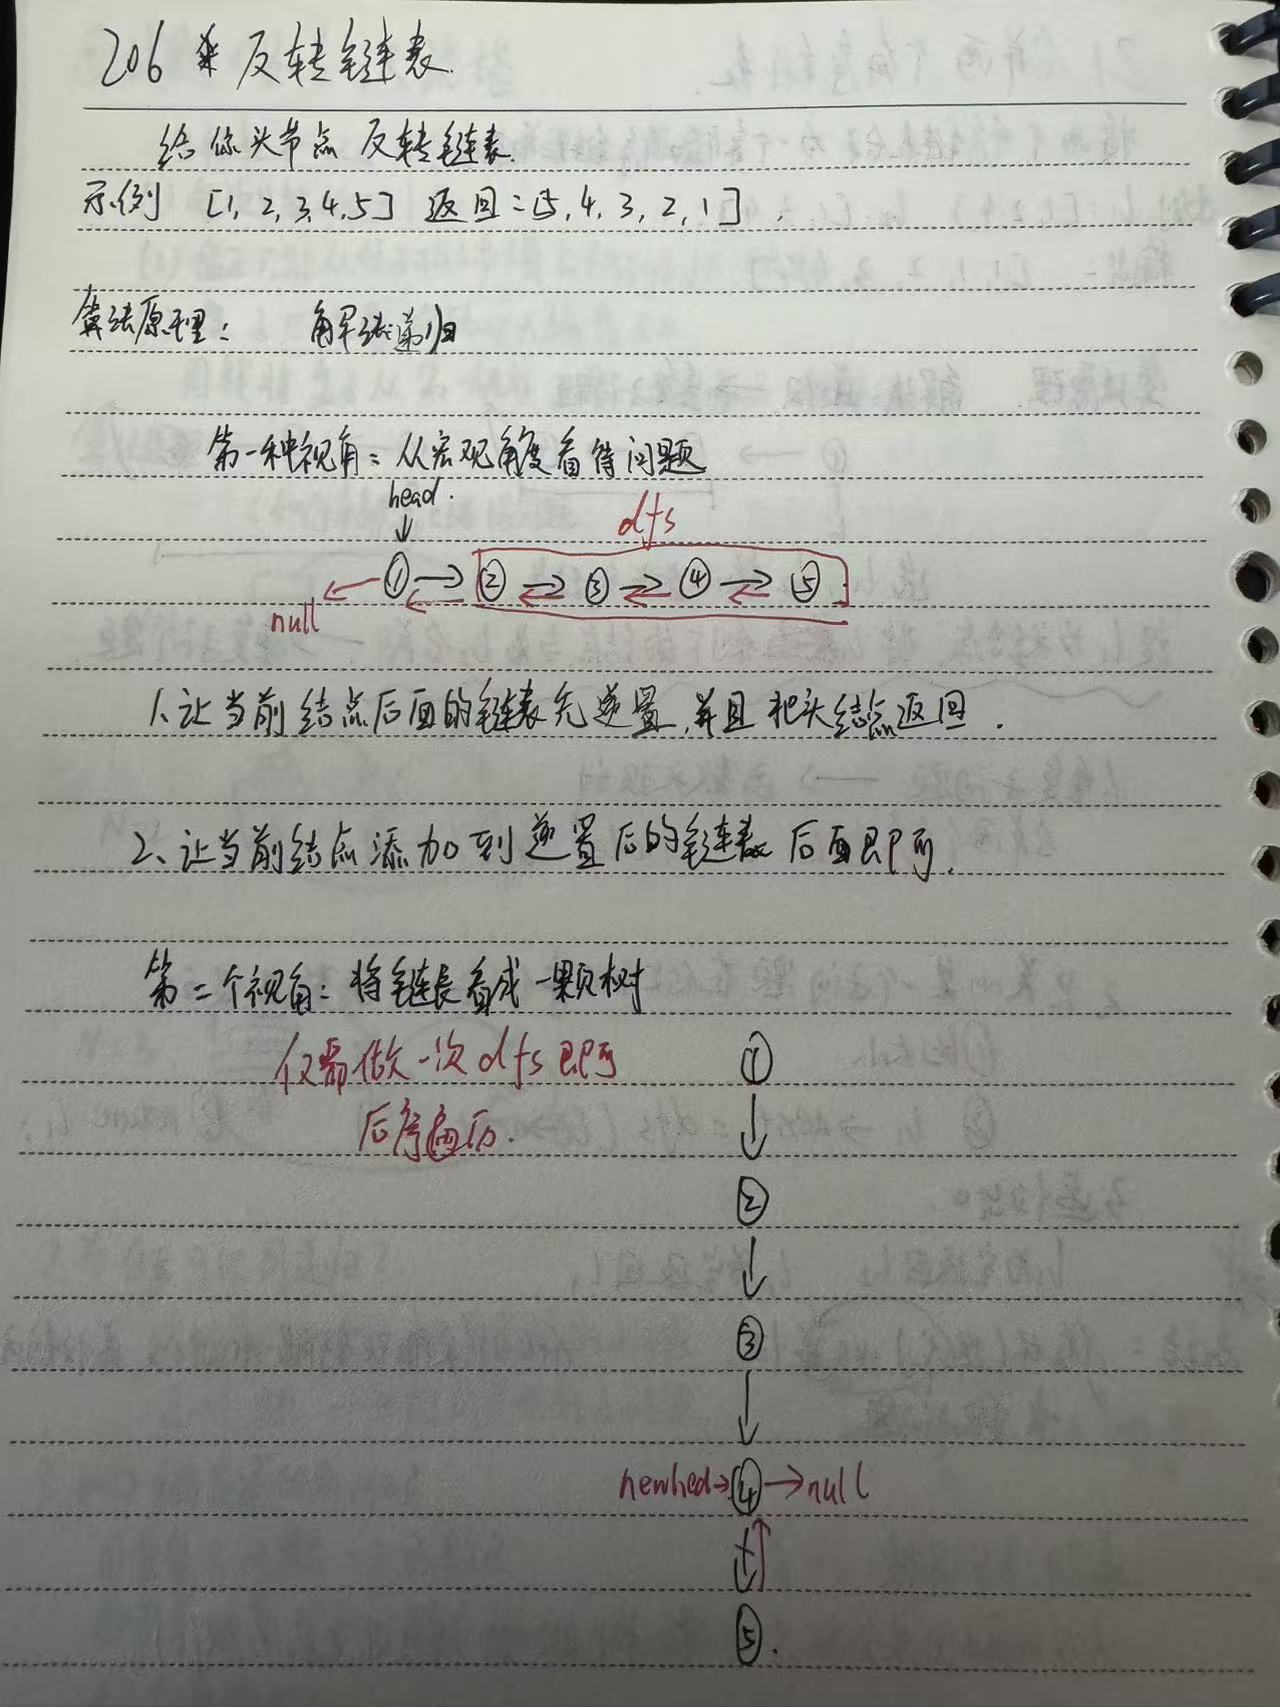 206 * 反转链表.
给你头节点 反转链表.
示例 [1, 2, 3, 4, 5] 返回: [5, 4, 3, 2, 1].
算法原理: 解法: 递归
第一种视角: 从宏观角度看待问题
head.
dfs
① ② ③ ④ ⑤
null
1、让当前结点后面的链表先逆置, 并且把头结点返回.
2、让当前结点添加到逆置后的链表后面即可.
第二个视角: 将链表看成一颗树
仅需做一次dfs即可
①
后序遍历.
②
③
newhed→④→null
⑤.